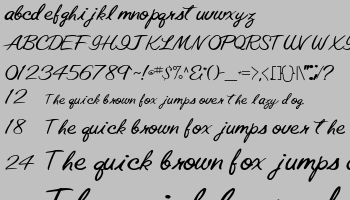 abcdefghijklmnopqrstuvwxyz
ABCDEFGHIJKLMNOPQRSTUVWX
0123456789~!@#$%^&*()-_+=>,<[]{}|\":;'/?
12 The quick brown fox jumps over the lazy dog.
18 The quick brown fox jumps over the
24 The quick brown fox jumps